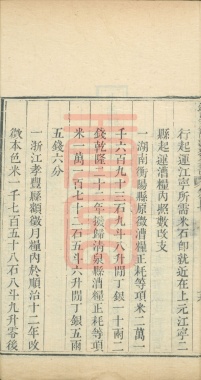 行起運江寧所需米石即就近在上元江寧二
縣起運漕糧內照數改支
一湖南衡陽縣原徵漕糧正耗等項米一萬一
千六百九十三石九斗八升閒丁銀一十兩二
錢乾隆二十二年撥歸清泉縣漕糧正耗等項
米一萬一百七十二石五斗六升閒丁銀五兩
五錢六分
一浙江孝豐縣額徵月糧內於順治十二年改
徵本色米一千七百五十八石八斗九升零後